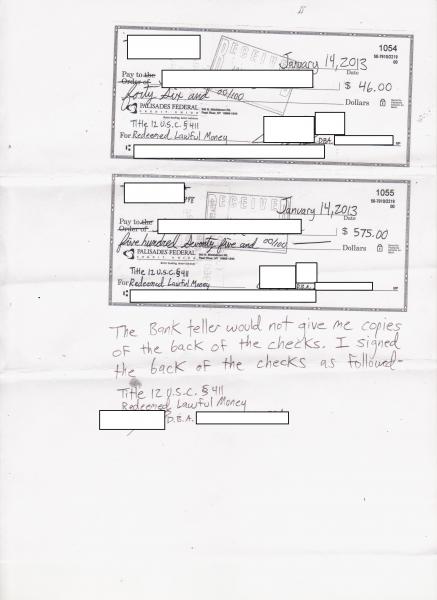 1054
RECEIVED
January 14, 2013
Date
Pay to the
Order of
$ 46.00
forty six and 00/100
Dollars
PALISADES FEDERAL
CREDIT UNION
Title 12 U.S.C. § 411
For Redeemed Lawful Money
DBA
1055
RECEIVED
January 14, 2013
Date
Pay to the
Order of
$ 575.00
five hundred seventy five and 00/100
Dollars
PALISADES FEDERAL
CREDIT UNION
Title 12 U.S.C. § 411
For Redeemed Lawful Money
D.B.A.
The Bank teller would not give me copies
of the back of the checks. I signed
the back of the checks as followed
Title 12 U.S.C. § 411
Redeemed Lawful Money
D.B.A.